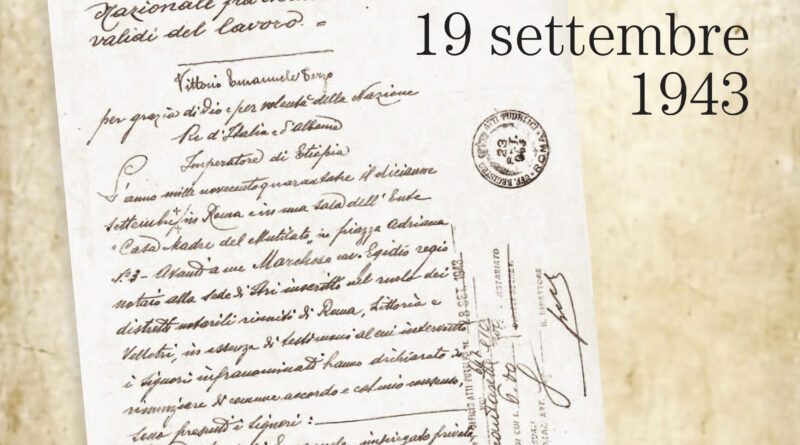 Nazionale fra
validi del lavoro. =
19 settembre
1943
Vittorio Emanuele Terzo
per grazia di Dio e per volontà della Nazione
Re d'Italia e d'Albania
Imperatore di Etiopia
L'anno mille novecentoquarantatre il dicianno
settembre in Roma e in una sala dell'Ente
"Casa Madre del Mutilato" in piazza Adriana
N° 3 - Avanti a me Marchese cav. Egidio regio
notaio alla sede di Ari inscritto nel ruolo dei
distretti notarili riuniti di Roma, Littoria e
Velletri, in assenza di testimoni al cui intervento
i signori infranominati hanno dichiarato di
rinunziare di comune accordo e col mio consenso,
sono presenti i signori:
ATTI PUBBLICI
23
ROMA
UFF. REGISTRO
28 SET. 1943
NOTARIATO
IL DIRETTORE